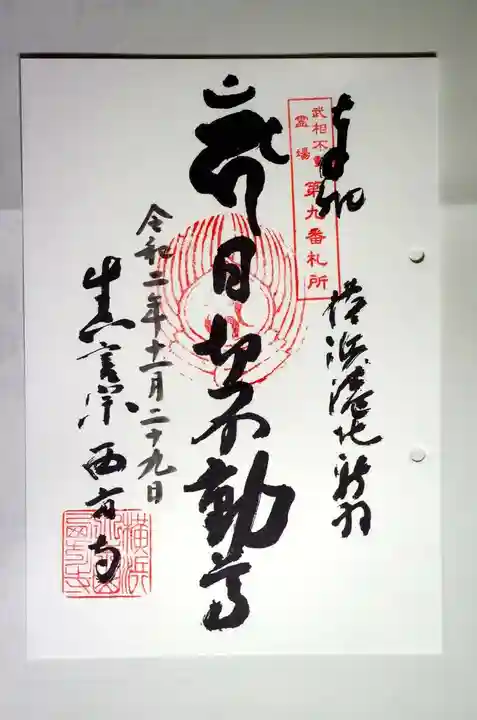 奉拝
武相不動
霊場
第九番札所
横浜港北新羽
目切不動尊
令和二年十一月二十九日
真言宗 西方寺
横浜